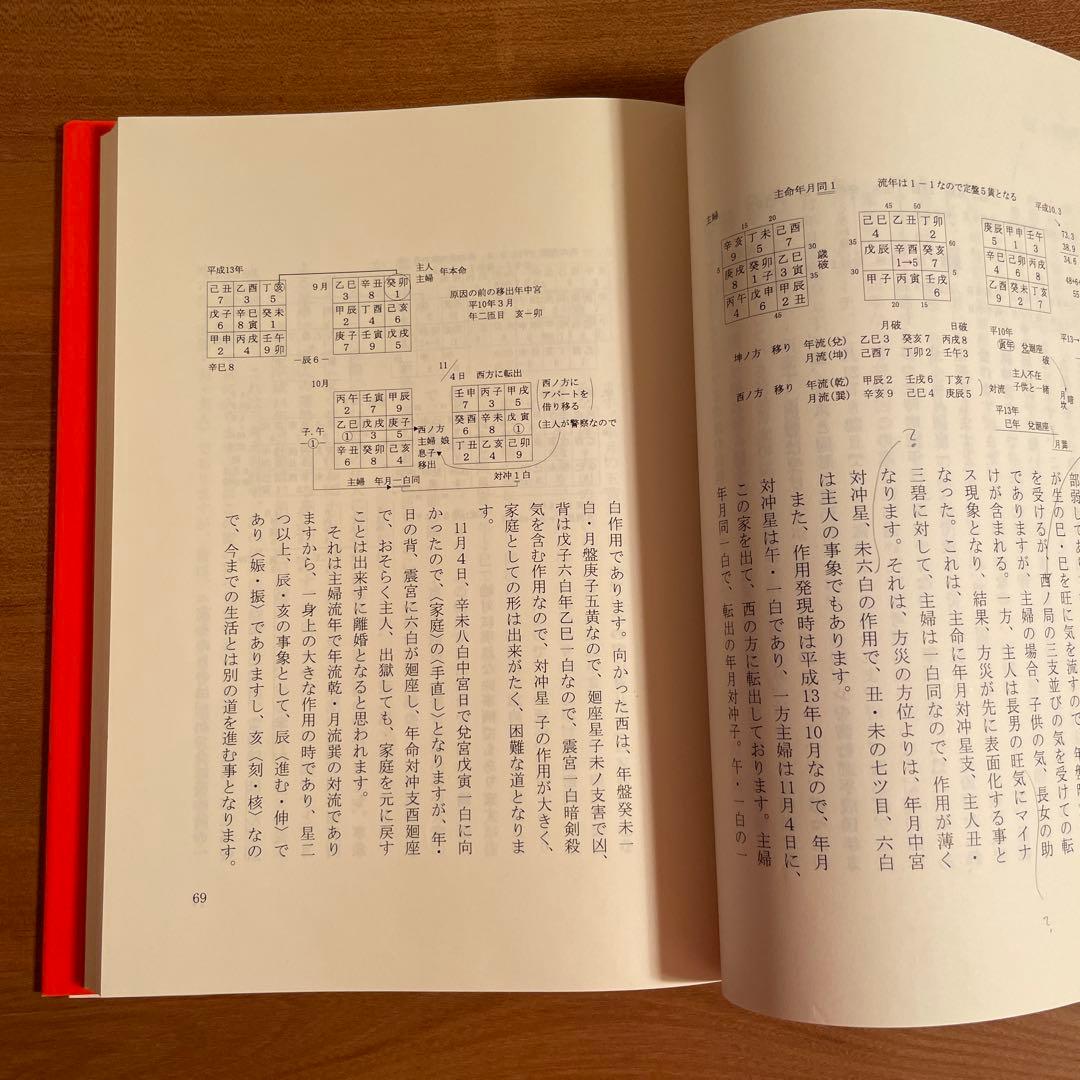 主命年月同1
流年は1－1なので定盤5黄となる
平成10.3
73.3
38.9
34.6
主婦
15 20
辛亥 丁未 己酉
9 5 7
庚戌 癸卯 乙巳
8 1子 3寅
丙午 戊申 甲辰
4 6 2丑
45
30 歳破
35
45 50
己巳 乙丑 丁卯
4 2
戊辰 辛酉 癸亥
1→5 7
甲子 丙寅 壬戌
6
20 15
35
5
60
55
庚辰 甲申 壬午
5 1 3
辛巳 己卯 丙戌
4 6 8
乙酉 癸未 丁亥
9 2 7
月破 日破
坤ノ方 移り 年流(兌) 乙巳3 癸亥7 丙戌8
月流(坤) 己酉7 丁卯2 壬午3
西ノ方 移り 年流(乾) 甲辰2 壬戌6 丁亥7
月流(巽) 辛亥9 己巳4 庚辰5
対流
平成10年
寅年 兌廻座
破
主人不在
子供と一緒
平成13年
巳年 兌廻座
月巽
平成13→
月坎
暗
部弱して
が生の巳・巳を旺に気を流すので、
を受けるが、西ノ局の三支並びの気を受けての転
でありますが、主婦の場合、子供の気、長女の助
けが含まれる。一方、主人は長男の旺気にマイナ
ス現象となり、結果、方災が先に表面化する事と
なった。これは、主命に年月対冲星支、主人丑・
三碧に対して、主婦は一白同なので、作用が薄く
なります。それは、方災の方位よりは、年月中宮
対冲星、未六白の作用で、丑・未の七ツ目、六白
は主人の事象でもあります。
また、作用発現時は平成13年10月なので、年月
対冲星は午・一白であり、一方主婦は11月4日に、
この家を出て、西の方に転出しております。主婦
年月同一白で、転出の年月対冲子。午・一白の一
平成13年
己丑 乙酉 丁亥
7 3 5
戊子 辛巳 癸未
6 8寅 1
甲申 丙戌 壬午
2 4 9卯
辛巳8
9月
乙巳 辛丑 癸卯
3 8 1
甲辰 丁酉 己亥
2 4 6
庚子 壬寅 戊戌
7 9 5
－辰6－
主人
主婦
年本命
原因の前の移出年中宮
平成10年3月
年二匝目 亥－卯
10月
丙午 壬寅 甲辰
2 7 9
乙巳 戊戌 庚子
① 3 5
辛丑 癸卯 己亥
6 8 4
子,午
－①－
西ノ方
主婦 娘
息子
移出
11/4日 西方に転出
壬申 丙子 甲戌
7 3 5
癸酉 辛未 戊寅
6 8 ①
丁丑 乙亥 己卯
2 4 9
西ノ方に
アパートを
借り移る
(主人が警察なので
対冲1白
主婦 年月一白同
白作用であります。向かった西は、年盤癸未一
白・月盤庚子五黄なので、廻座星子未ノ支害で凶、
背は戊子六白年乙巳一白なので、震宮一白暗剣殺
気を含む作用なので、対冲星 子の作用が大きく、
家庭としての形は出来がたく、困難な道となりま
す。
11月4日、辛未八白中宮日で兌宮戊寅一白に向
かったので、〈家庭〉の〈手直し〉となりますが、年・
日の背、震宮に六白が廻座し、年命対冲支酉廻座
で、おそらく主人、出獄しても、家庭を元に戻す
ことは出来ずに離婚となると思われます。
それは主婦流年で年流乾・月流巽の対流であり
ますから、一身上の大きな作用の時であり、星二
つ以上、辰・亥の事象として、辰〈進む・伸〉で
あり〈娠・振〉でありますし、亥〈刻・核〉なの
で、今までの生活とは別の道を進む事となります。
69